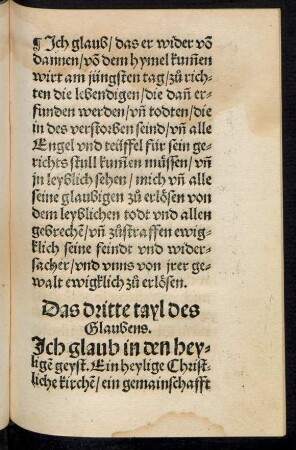 ¶ Jch glaub/ das er wider võ
dannen/ võ dem hymel kum̃en
wirt am jüngsten tag/ zů rich-
ten die lebendigen/ die dañ er-
funden werden/ vñ todten/ die
in des verstorben seind/ vñ alle
Engel vnd teüffel für sein ge-
richts stůll kum̃en müssen/ vñ
jn leyblich sehen/ mich vñ alle
seine glaubigen zů erlösen von
dem leyblichen todt vnd allen
gebrechẽ/ vñ zůstraffen ewig-
klich seine feindt vnd wider-
sacher/ vnd vnns von jrer ge-
walt ewigklich zů erlösen.
Das dritte tayl des
Glaubens.
Jch glaub in den hey-
ligẽ geyst. Ein heylige Christ-
liche kirchẽ/ ein gemainschafft